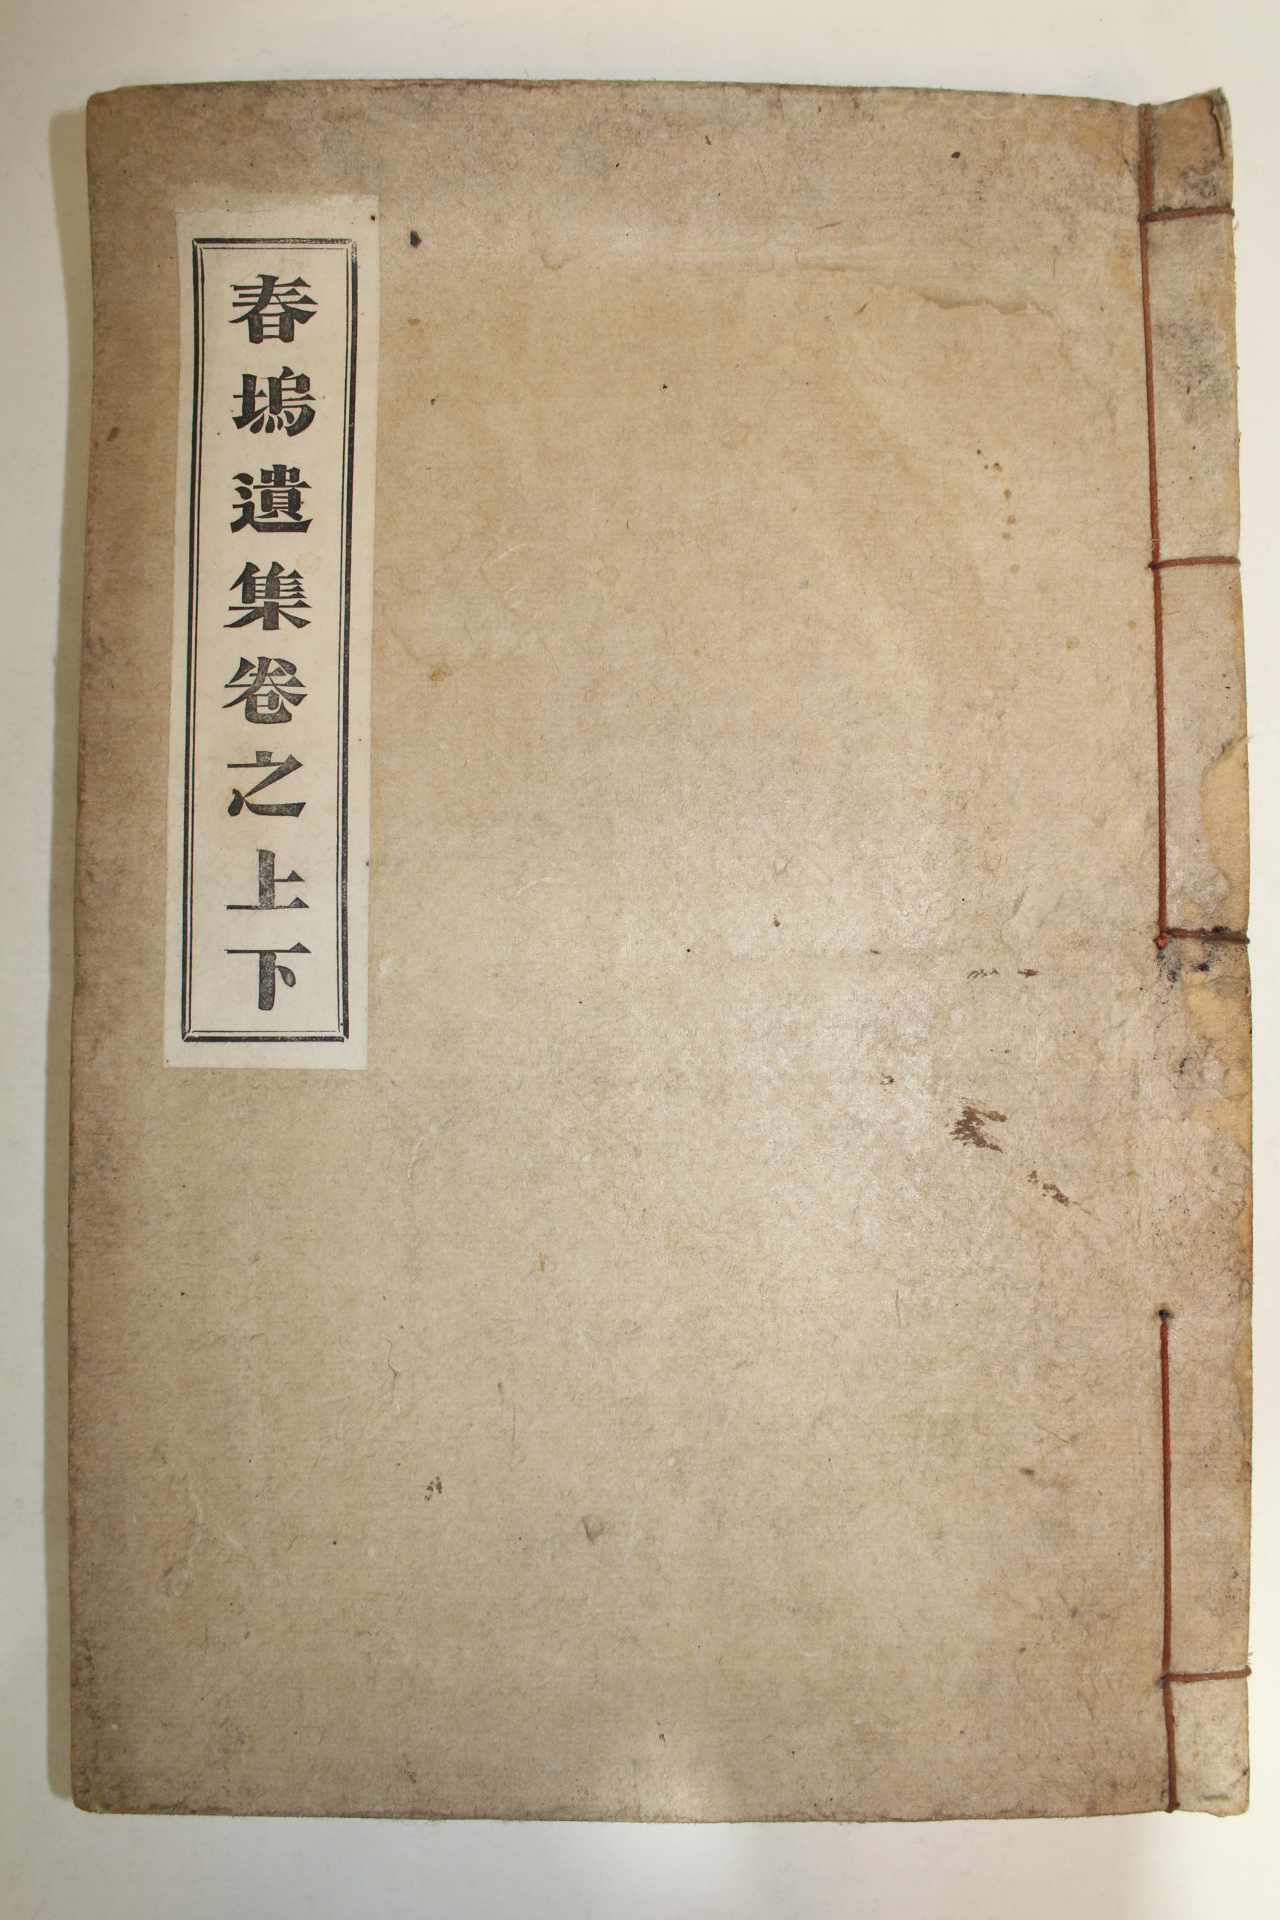 春塢遺集卷之上下